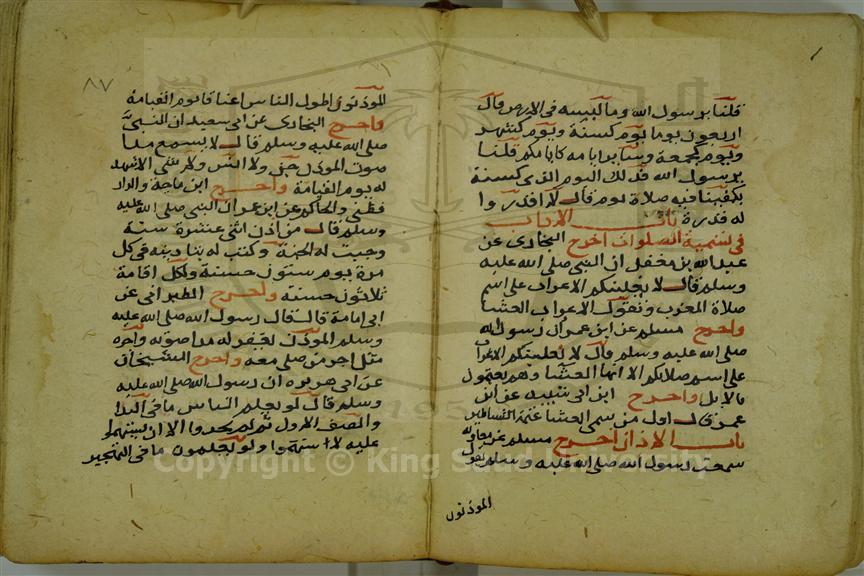 قلنا يرسول الله وما لبيسه في الارض قال
اربعون يوما يوم كسنة ويوم كشهر
ويوم كجمعة وسائر ايامه كايامكم قلنا
يرسول الله فذلك اليوم الذي كسنة
يكفينا فيه صلاة يوم قال لا اقدروا
له قدره باب الاداب
في تسمية الصلوات اخرج البخاري عن
عبد الله بن مغفل ان النبي صلى الله عليه
وسلم قال لا يغلبنكم الاعراب على اسم
صلاة المغرب وتقول الاعراب العشا
واخرج مسلم عن ابن عمر ان رسول الله
صلى الله عليه وسلم قال لا يغلبنكم الاعراب
على اسم صلاتكم الا انها العشا وهم يعتمون
بالابل واخرج ابن ابي شيبه عن ابن
عمر قال اول من سمى العشا عتمة الشيطان
باب الاذان اخرج مسلم عن معاويه
سمعت رسول الله صلى الله عليه وسلم يقول
الموذنون
٨٧
الموذنون اطول الناس اعناقا يوم القيامة
واخرج البخاري عن ابي سعيد ان النبي
صلى الله عليه وسلم قال لا يسمع مدا
صوت الموذن جن ولا انس ولا شي الا شهد
له يوم القيامة واخرج ابن ماجة والدار
قطني والحاكم عن ابن عمر ان النبي صلى الله عليه
وسلم قال من اذن اثنى عشرة سنة
وجبت له الجنة وكتب له بتاذينه في كل
مرة بيوم ستون حسنة وبكل اقامة
ثلاثون حسنة واخرج الطبراني عن
ابي امامة قال قال رسول الله صلى الله عليه
وسلم الموذن يغفر له مدا صوته واجره
مثل اجر من صلى معه واخرج الشيخان
عن ابي هريره ان رسول الله صلى الله عليه
وسلم قال لو يعلم الناس ما في الندا
والصف الاول ثم لم يجدوا الا ان يستهموا
عليه لاستهموا ولو يعلمون ما في التهجير
Copyright © King Saud University
1957